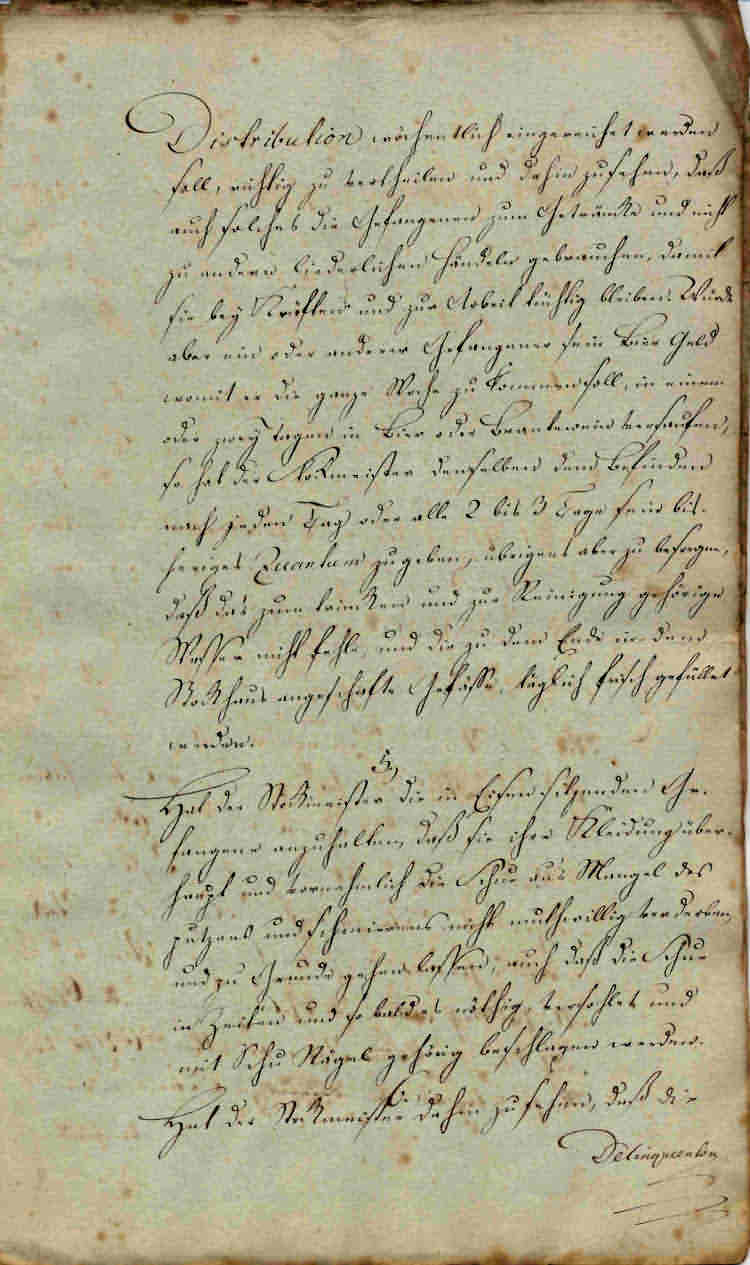 Distribution wöchentlich eingereichet werden
soll, richtig zu vertheilen und dahin zu sehen, daß
auch solches die Gefangenen zum Getränke und nicht
zu andern liederlichen Händeln gebrauchen, damit
sie bey Kräften und zur Arbeit tüchtig bleiben. Würde
aber ein oder anderer Gefangener sein Bier Geld
womit er die ganze Woche zu kommen soll, in einem
oder zwey Tagen in Bier oder Brantewein versaufen,
so hat der Stockmeister denselben dem Befinden
nach jeden Tag oder alle 2 bis 3 Tage sein bis-
heriges Quantum zu geben, übrigens aber zu besorgen,
daß das zum trincken und zur Reinigung gehörige
Wasser nicht fehle, und die zu dem Ende in dem
Stockhaus angeschafte Gefässe, täglich frisch gefüllet
werden.
5,
Hat der Stockmeister die in Eisen sitzenden Ge-
fangene anzuhalten, daß sie ihre Kleidung über-
haupt und vornehmlich die Schue aus Mangel des
putzens und schmierens nicht muthwillig verderben,
und zu Grunde gehen lassen, auch daß die Schue
in Zeiten und so bald es nöthig, versohlet und
mit Schu Nägel gehörig beschlagen werden.
6
Hat der Stockmeister dahin zu sehen, daß die
Delinquenten